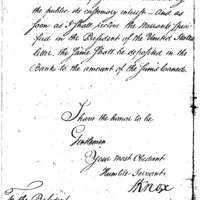 the public its customary interest - And as
soon as I shall receive the Warrants speci-
fied in the President of the United States
letter, the same shall be deposited in the
Bank to the amount of the sums loaned.
I have the honor to be
Gentlemen
Your most Obedient
Humble Servant
HKnox
To the President